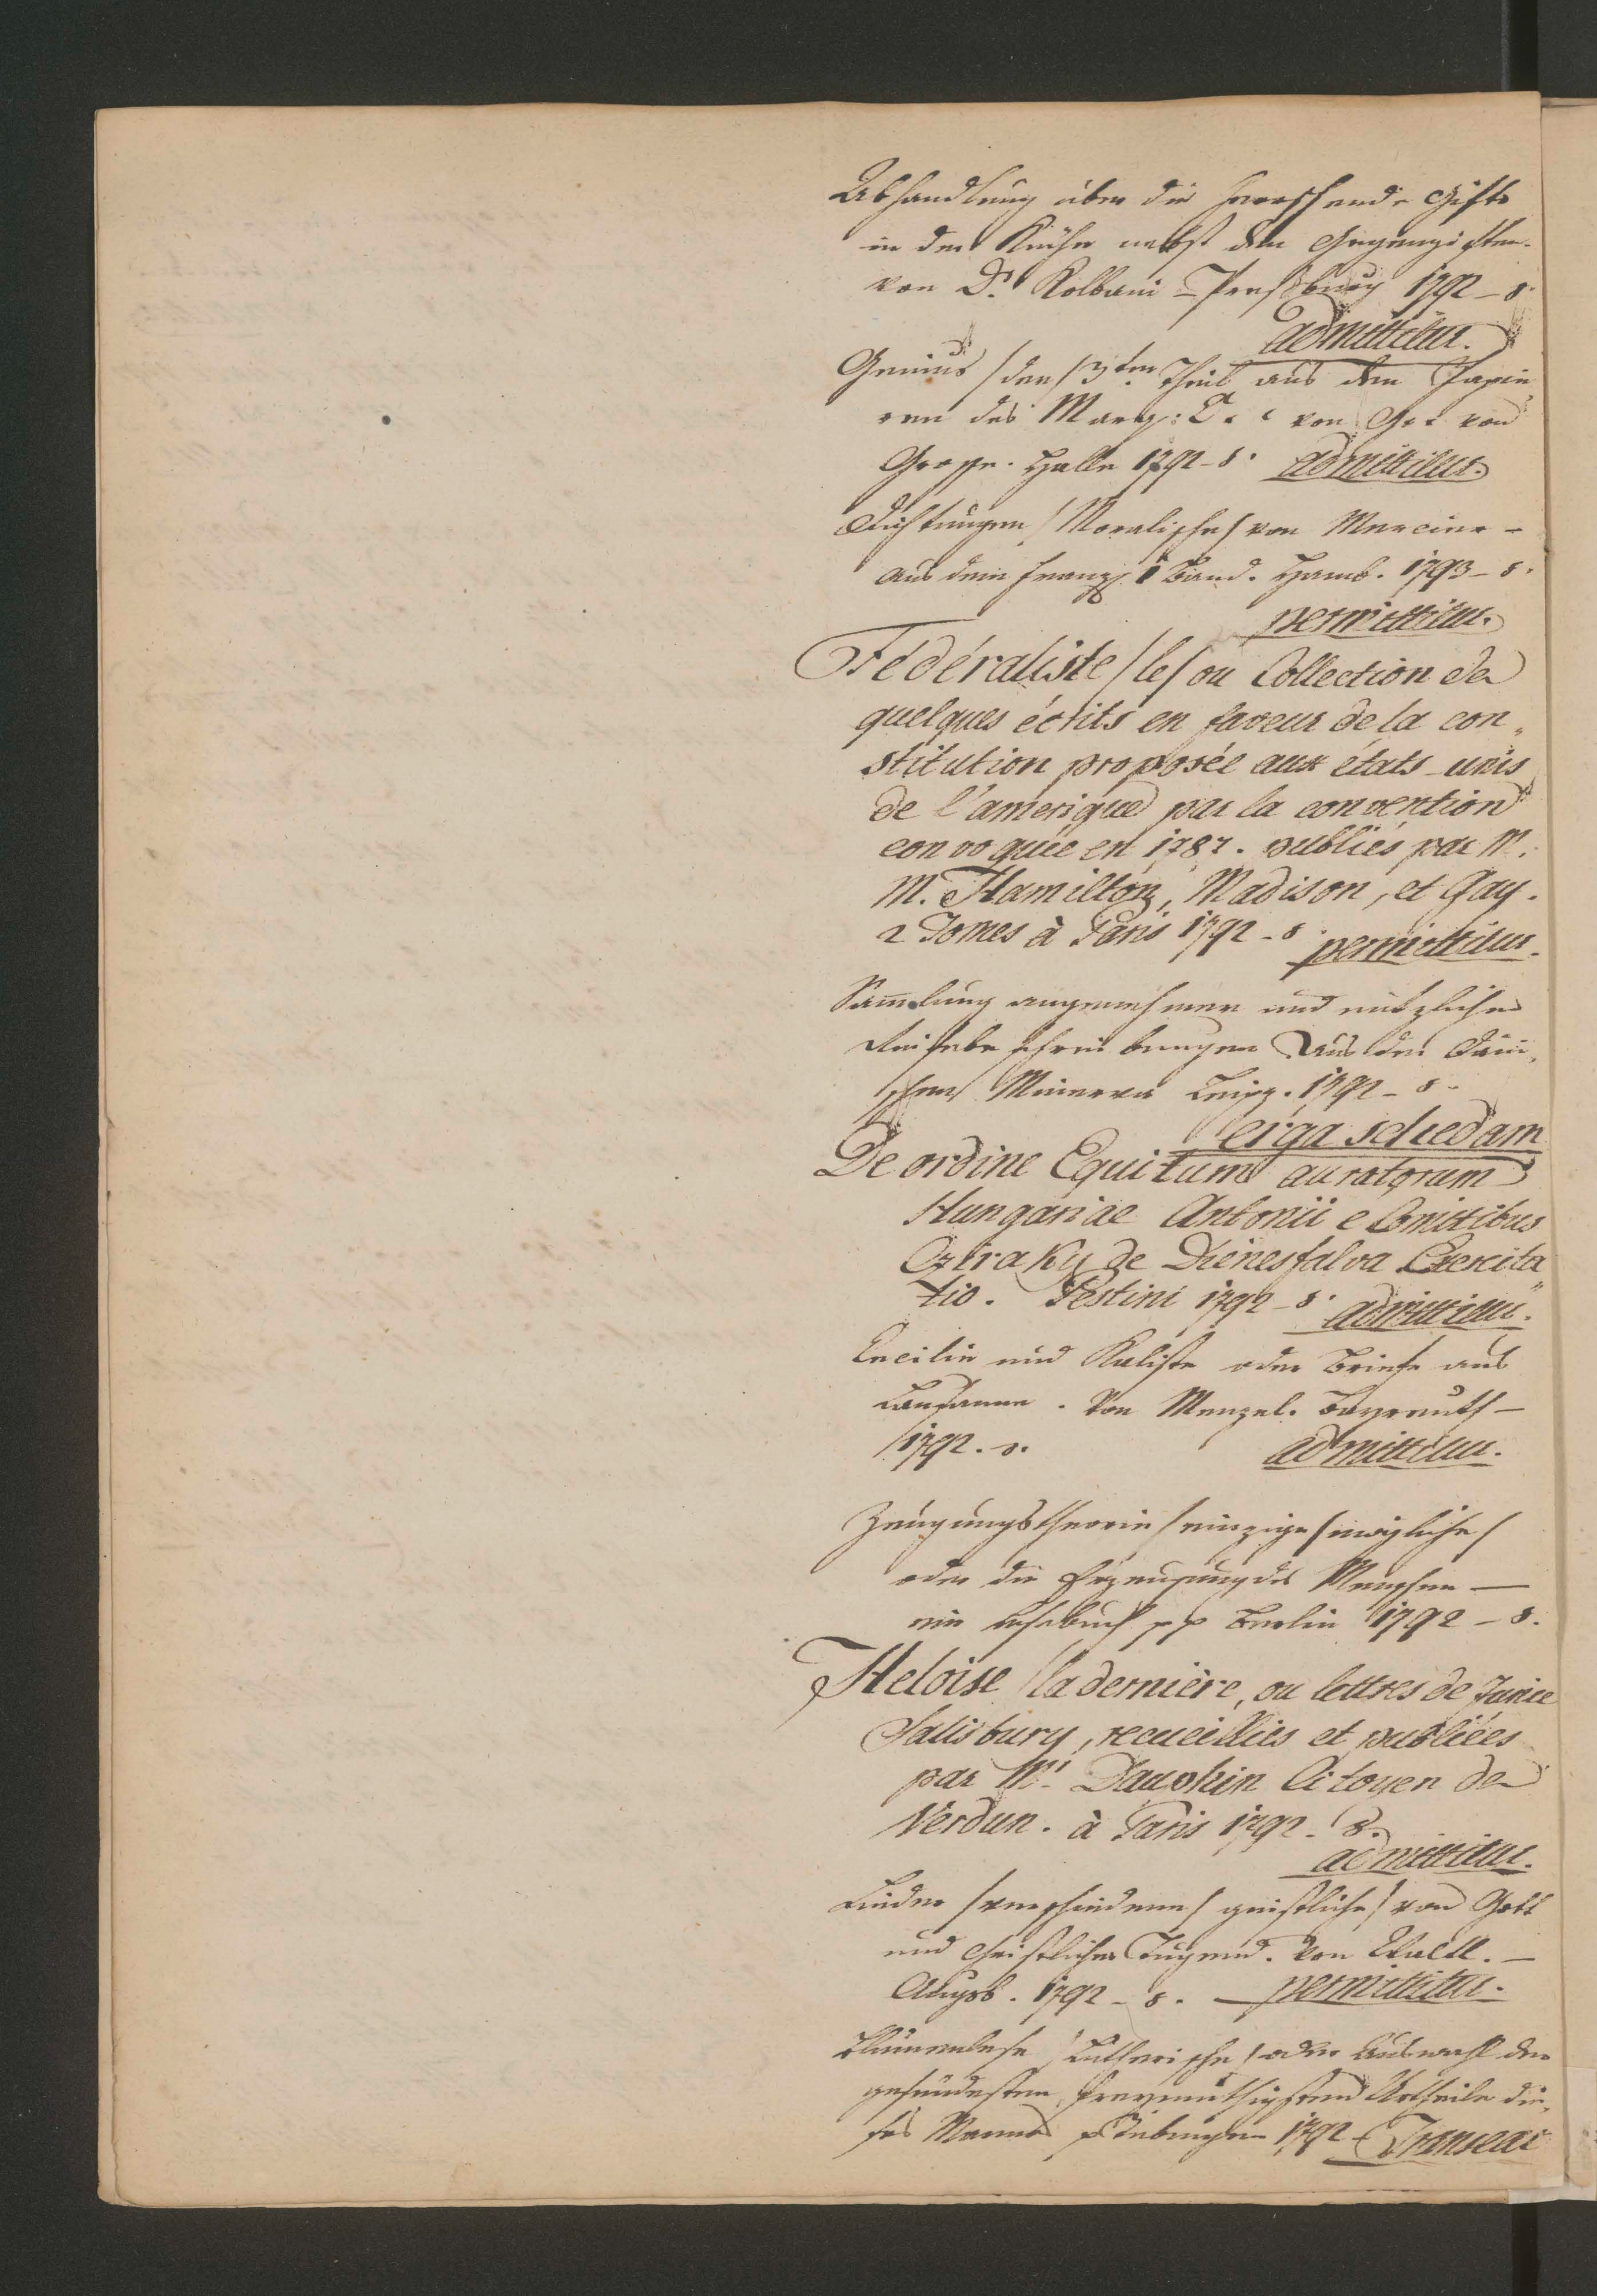 Abhandlung über die herrschende Gifte
in der Küche nebst den Gegengiften.
von Dr. Kolbani - Presburg 1792 - 8.
admittitur.
Genius /der/ 3ten Theil aus den Papie,
ren des Marq: C. v von G. v von
Grosse. Halle 1792 - 8. admittitur.
Dichtungen /Moralische/ von Mercier -
aus dem Franz. 1 Band. Hamb. 1793 - 8.
permittitur.
Fédéraliste /le/ ou Collection de
quelques écrits en faveur de la con,,
stitution proposée aux états-unis
de l'amerique par la convention
convoquée en 1787. publiés par M.
M. Hamilton, Madison, et Gay.
2 Tomes à Paris 1792 - 8. permittitur.
Samlung angenehmer und nützlicher
Reisebeschreibungen aus der Däni,
schen Minerva Leipz. 1792 - 8.
erga schedam
De ordine Equitum auratorum
Hungariae Antonii e Comitibus
Cziraky de Dienesfalva Exercita,,
tio. Pestini 1792 - 8. admittitur.
Cecilie und Kaliste oder Briefe aus
Lausanne. Von Menzel. Bayreuth -
1792. 8. admittitur.
Zeugungstheorie /einzige/ mögliche/
oder die Erzeugung des Menschen —
ein Lesebuch pp Berlin 1792 - 8.
Heloise /la dernière, ou lettres de Junie
Salisbury, recueillies et publiées
par Mr. Dauphin Citoyen de
Verdun. à Paris 1792 - 8.
admittitur.
Lieder /verschiedene/ geistliche/ von Gott
und christlicher Tugend. Von -
Augsb. 1792 - 8. — permittitur.
Blumenlese /Lutherische/ oder Auswahl der
gesündesten freymüthigsten Urtheile die,
ses Mannes p Tübingen 1792 - Transeat